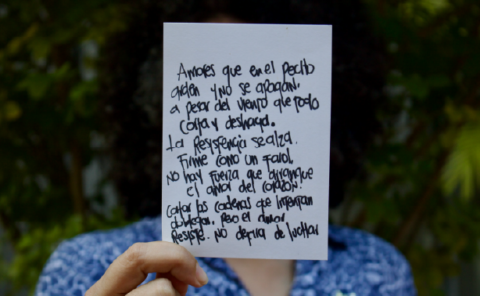 Amores que en el pecho
arden y no se apagan,
a pesar del viento que todo
corta y deshaga.
La Resystencia se alza.
Firme como un farol,
No hay fuerza que arranque
el amor del corazón!
Cortar las cadenas que intentan
Pero el amor
Resiste. No dejra de luchar